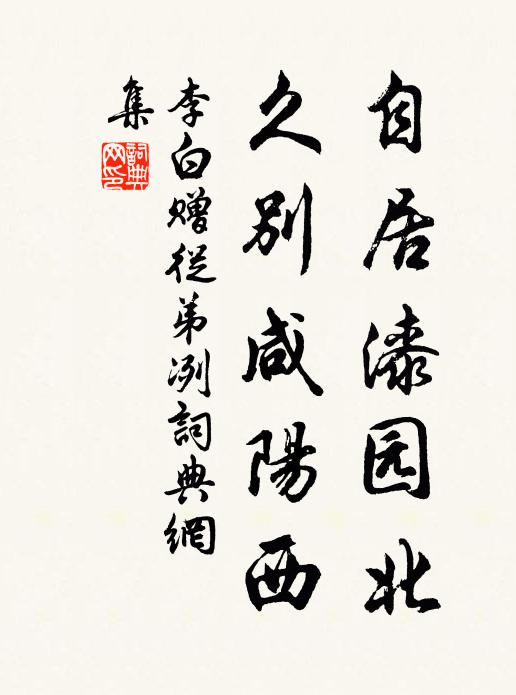 自居漆园北
久别咸陽西
李白赠從弟冽詞典網
集
詞典网印